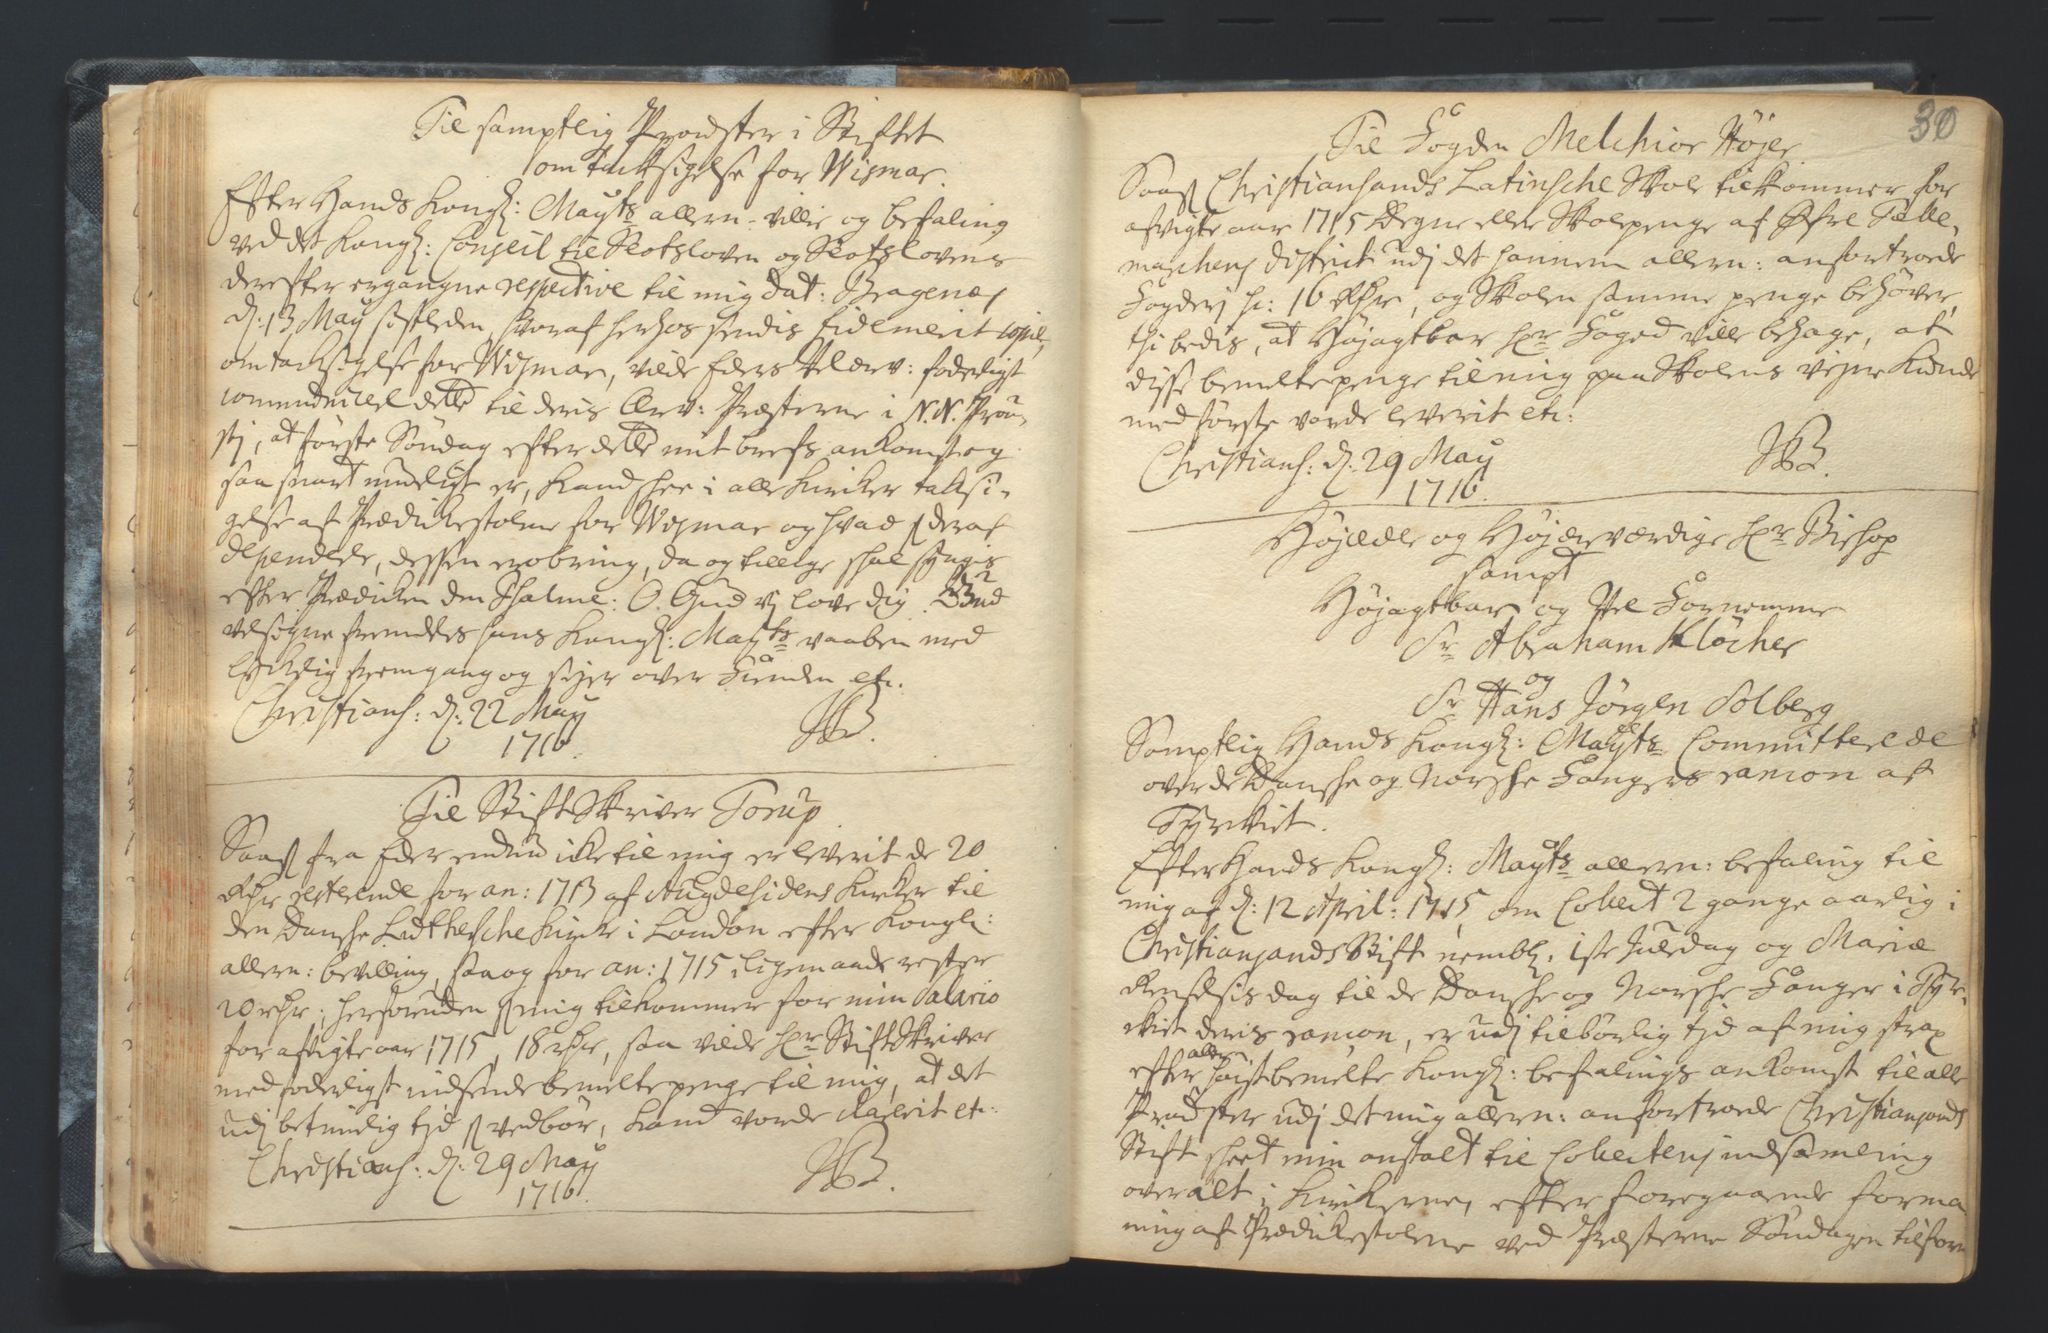 Til samptlig Proudster i Stiftet
om tachsigelse for Wismar.
Efter Hands Kongl: Mayts allern: villie og befaling
ved det Kongl: Conseil til Slotsloven og Slotslovens
derefter ergangne respective til mig dat: Bragenæs
d: 13 May sistleden, hvoraf herhos sendis Fidemerit copie,
om tachsigelse for Wismar, vilde Eders Velærv: foderligst
communicere dette til deris Ærv: Præsterne i N.N. Prou-
stj, at første Søndag efter dette mit brefs ankomst og
saa snart mueligt er, kand skee i alle Kircker taksi-
gelse af Prædickestolene for Wismar og hvad deraf
dependere, dessen erobring, da og tillige skal siunges
efter Prædicken den Psalme: O Gud vj love dig. Gud
velsigne fremdeles hans Kongl: Mayts vaaben med
lyckelig fremgang og seyer over Fienden etc.
Christians: d: 22 May
1716.
JB.
Til StiftSkriver Torup.
Saas fra Eder endnu icke til mig er leverit de 20
Rdr resterende for an: 1713 af Augdesidens Kircker til
den Danske Lutherske Kircke i London efter Kongl:
allern: bevilling, saa og for an: 1715 i ligemaade rester
20 rdr; herforuden mig tilkommer for min Salario
for afvigte aar 1715, 18 rdr, saa vilde Hr StiftSkriver
med foderligst indsende bemelte penge til mig, at det
udj betimelig tjd vedbør, kand vorde leverit etc:
Christians: d: 29 May
1716.
JB.
30
Til Fogden Melchior Höjer.
Saas Christiansands Latinsche Skole tilkommer for
afvigte aar 1715 Degne eller Skolepenge af Øfre Telle-
marchens district udj det hannem allern: anfortroede
Fogderj 16 Rdr, og Skolen samme penge behøver,
thi bedis, at Højagtbar Hr Foged ville behage, at
disse bemelte penge til mig paa Skolens vegne kunde
med første vorde leverit etc:
Christians: d: 29 May
1716.
JB.
Højædle og Højærværdige Hr Bishop
sampt
Højagtbar og Vel Fornemme
Sr Abraham Klöcher
og
Sr Hans Jörgen Solberg
Samptlig Hands Kongl: Mayts Committerede
over de Danske og Norske Fangers rancon af
Tyrckiet.
Efter Hands Kongl: Mayts allern: befaling til
mig af d: 12 April: 1715, om Collect 2 gange aarlig i
Christiansands Stift nembl: 1ste Juledag og Mariæ
Renselsis dag til de Danske og Norske Fanger i Tyr-
kiet deris rancon, er udj tilbørlig tjd af mig strax
efter allerhøistbemelte Kongl: befalings ankomst til alle
Proudster udj det mig allern: anfortroede Christiansands
Stift skeet min anstalt til Collectens indsamling
over alt i Kirckerne, efter foregaaende forma
ning af Prædickestolene ved Præsterne Søndagen tilforn